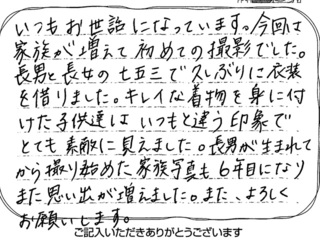 いつもお世話になっています。今回は
家族が増えて初めての撮影でした。
長男と長女の七五三で久しぶりに衣装
を借りました。キレイな着物を身に付
けた子供達はいつもと違う印象で
とても素敵に見えました。長男が生まれて
から撮り始めた家族写真も6年目になり
また思い出が増えました。また、よろしく
お願いします。
ご記入いただきありがとうございます